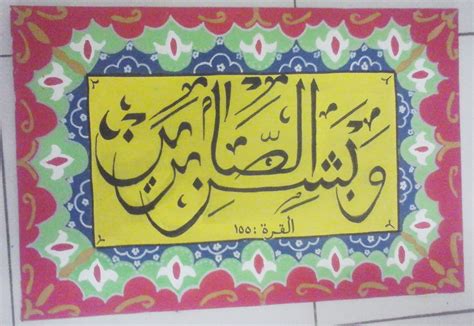 وبشر الصّابرين
القرة : ١٥٥